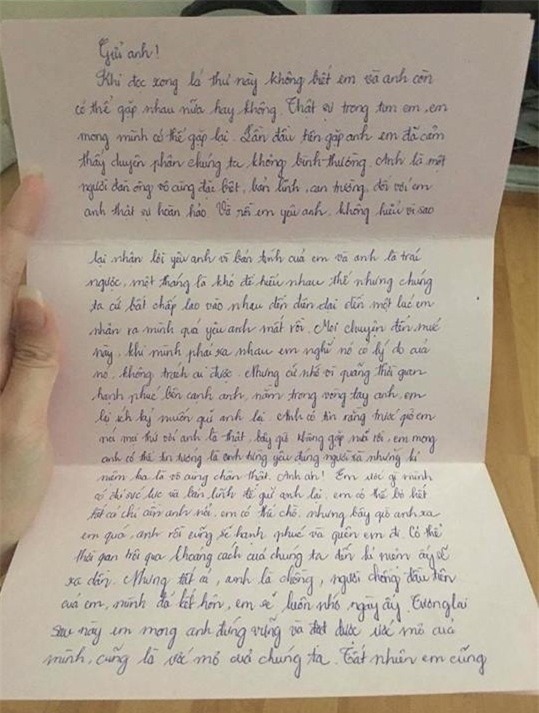 Gửi anh!
Khi đọc xong lá thư này không biết em và anh còn
có thể gặp nhau nữa hay không. Thật sự trong tim em, em
mong mình có thể gặp lại. Lần đầu tiên gặp anh em đã cảm
thấy chuyện phận chúng ta không bình thường. Anh là một
người đàn ông vô cùng đặc biệt, bản lĩnh, can trường, đối với em
anh thật sự hoàn hảo. Và rồi em yêu anh, không hiểu vì sao
lại nhận lời yêu anh vì bản tính của em và anh là trái
ngược, một tháng là khó để hiểu nhau thế nhưng chúng
ta cứ bất chấp lao vào nhau đến điên dại đến một lúc em
nhận ra mình quá yêu anh mất rồi. Mọi chuyện đến mức
này, khi mình phải xa nhau em nghĩ nó có lý do của
nó, không trách ai được. Nhưng cứ nhớ về quãng thời gian
hạnh phúc bên cạnh anh, nằm trong vòng tay anh, em
lại ích kỷ muốn giữ anh lại. Anh có tin rằng trước giờ em
mọi thứ với anh là thật, bây giờ không gặp nữa rồi, em mong
anh có thể tin tưởng là anh từng yêu đúng người và những kỉ
niệm kia là vô cùng chân thật. Anh ah! Em ước gì mình
có đủ sức lực và bản lĩnh để giữ anh lại, em có thể bỏ hết
tất cả chỉ cần anh nói, em có thể chờ, nhưng bây giờ anh xa
em quá, anh rồi cũng sẽ hạnh phúc và quên em đi. Có thể
thời gian trôi qua khoảng cách của chúng ta đến kỉ niệm ấy sẽ
xa dần. Nhưng tất cả, anh là chồng, người chồng đầu tiên
của em, mình đã kết hôn, em sẽ luôn nhớ ngày ấy. Tương lai
sau này em mong anh đứng vững và đạt được ước mơ của
mình, cũng là ước mơ của chúng ta. Tất nhiên em cũng